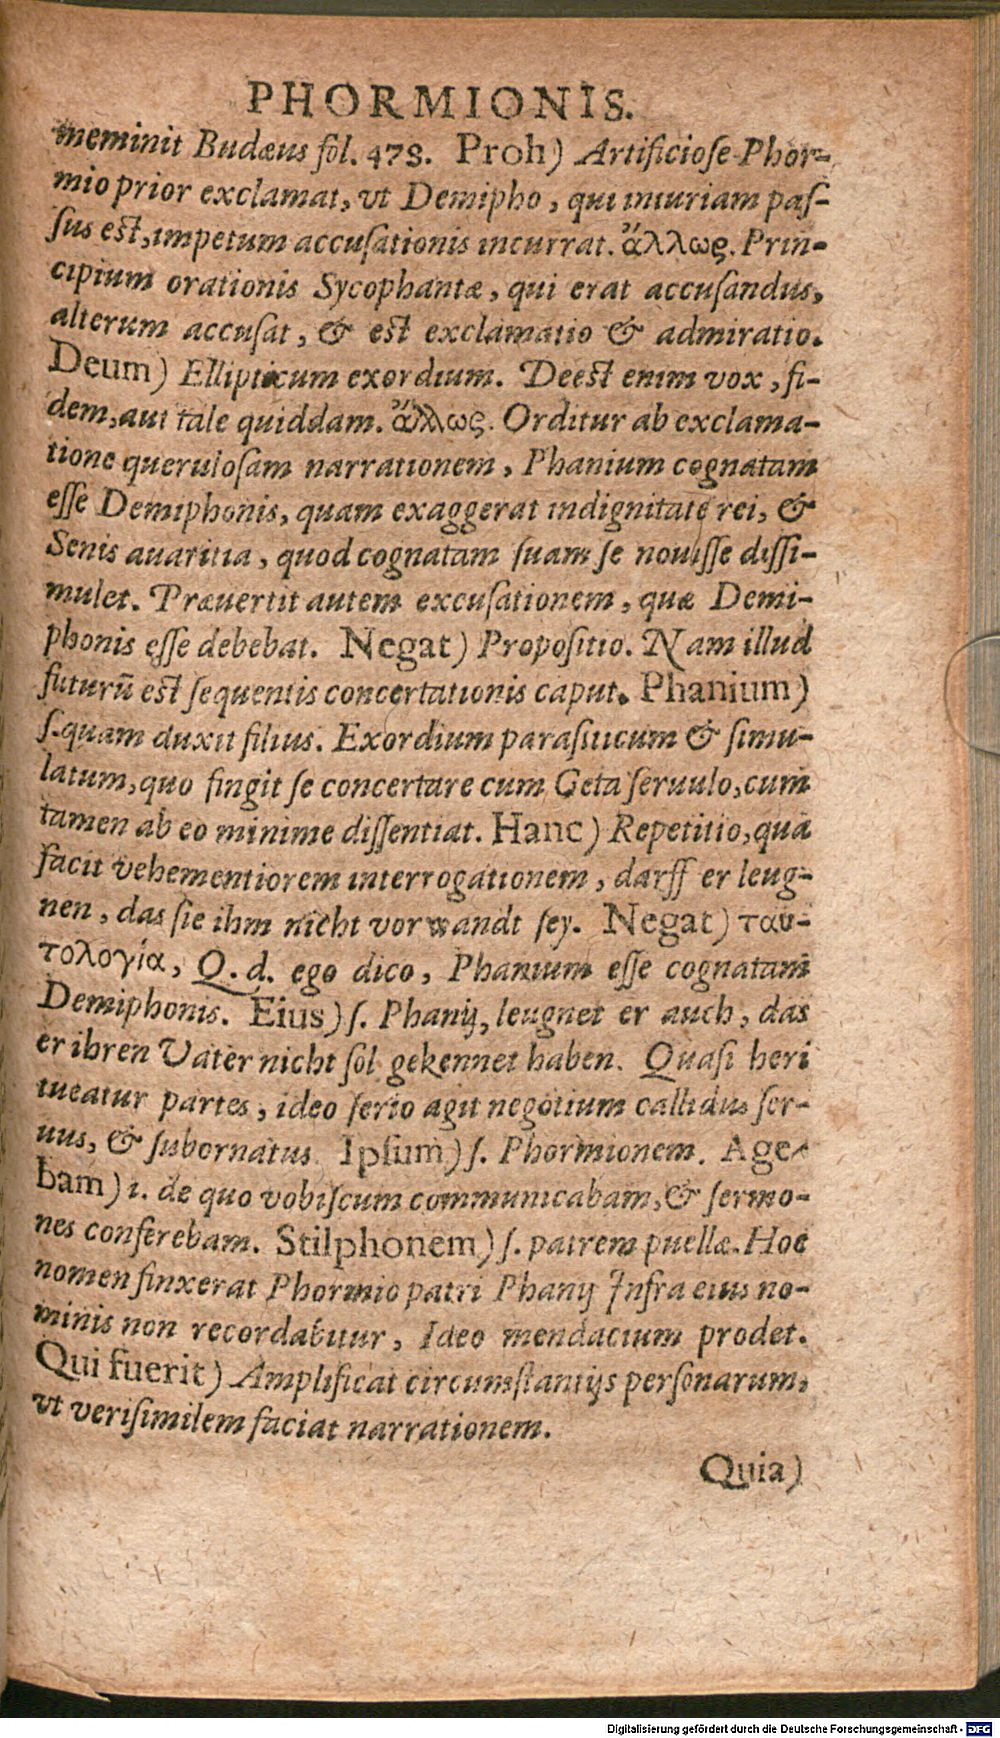 PHORMIONIS.
meminit Budæus fol. 473. Proh) Artificiose Phor-
mio prior exclamat, vt Demipho, qui iniuriam pas-
sus est, impetum accusationis incurrat. ἄλλως. Prin-
cipium orationis Sycophantæ, qui erat accusandus,
alterum accusat, & est exclamatio & admiratio.
Deum) Ellipticum exordium. Deest enim vox, fi-
dem, aut tale quiddam. ἄλλως. Orditur ab exclama-
tione querulosam narrationem, Phanium cognatam
esse Demiphonis, quam exaggerat indignitate rei, &
Senis auaritia, quod cognatam suam se nouisse dissi-
mulet. Præuertit autem excusationem, quæ Demi-
phonis esse debebat. Negat) Propositio. Nam illud
futurū est sequentis concertationis caput. Phanium)
s. quam duxit filius. Exordium parasiticum & simu-
latum, quo fingit se concertare cum Geta seruulo, cum
tamen ab eo minime dissentiat. Hanc) Repetitio, quæ
facit vehementiorem interrogationem, darff er leug-
nen, das sie ihm nicht vorwandt sey. Negat) ταυ-
τολογία, Q. d. ego dico, Phanium esse cognatam
Demiphonis. Eius) s. Phanij, leugnet er auch, das
er ihren Vater nicht sol gekennet haben. Quasi heri
tueatur partes, ideo serio agit negotium callidus ser-
uus, & subornatus. Ipsum) s. Phormionem. Age-
bam) i. de quo vobiscum communicabam, & sermo-
nes conferebam. Stilphonem) s. patrem puellæ. Hoc
nomen finxerat Phormio patri Phanij Infra eius no-
minis non recordabitur, Ideo mendacium prodet.
Qui fuerit) Amplificat circumstantijs personarum,
vt verisimilem faciat narrationem.
Quia)
Digitalisierung gefördert durch die Deutsche Forschungsgemeinschaft - DFG